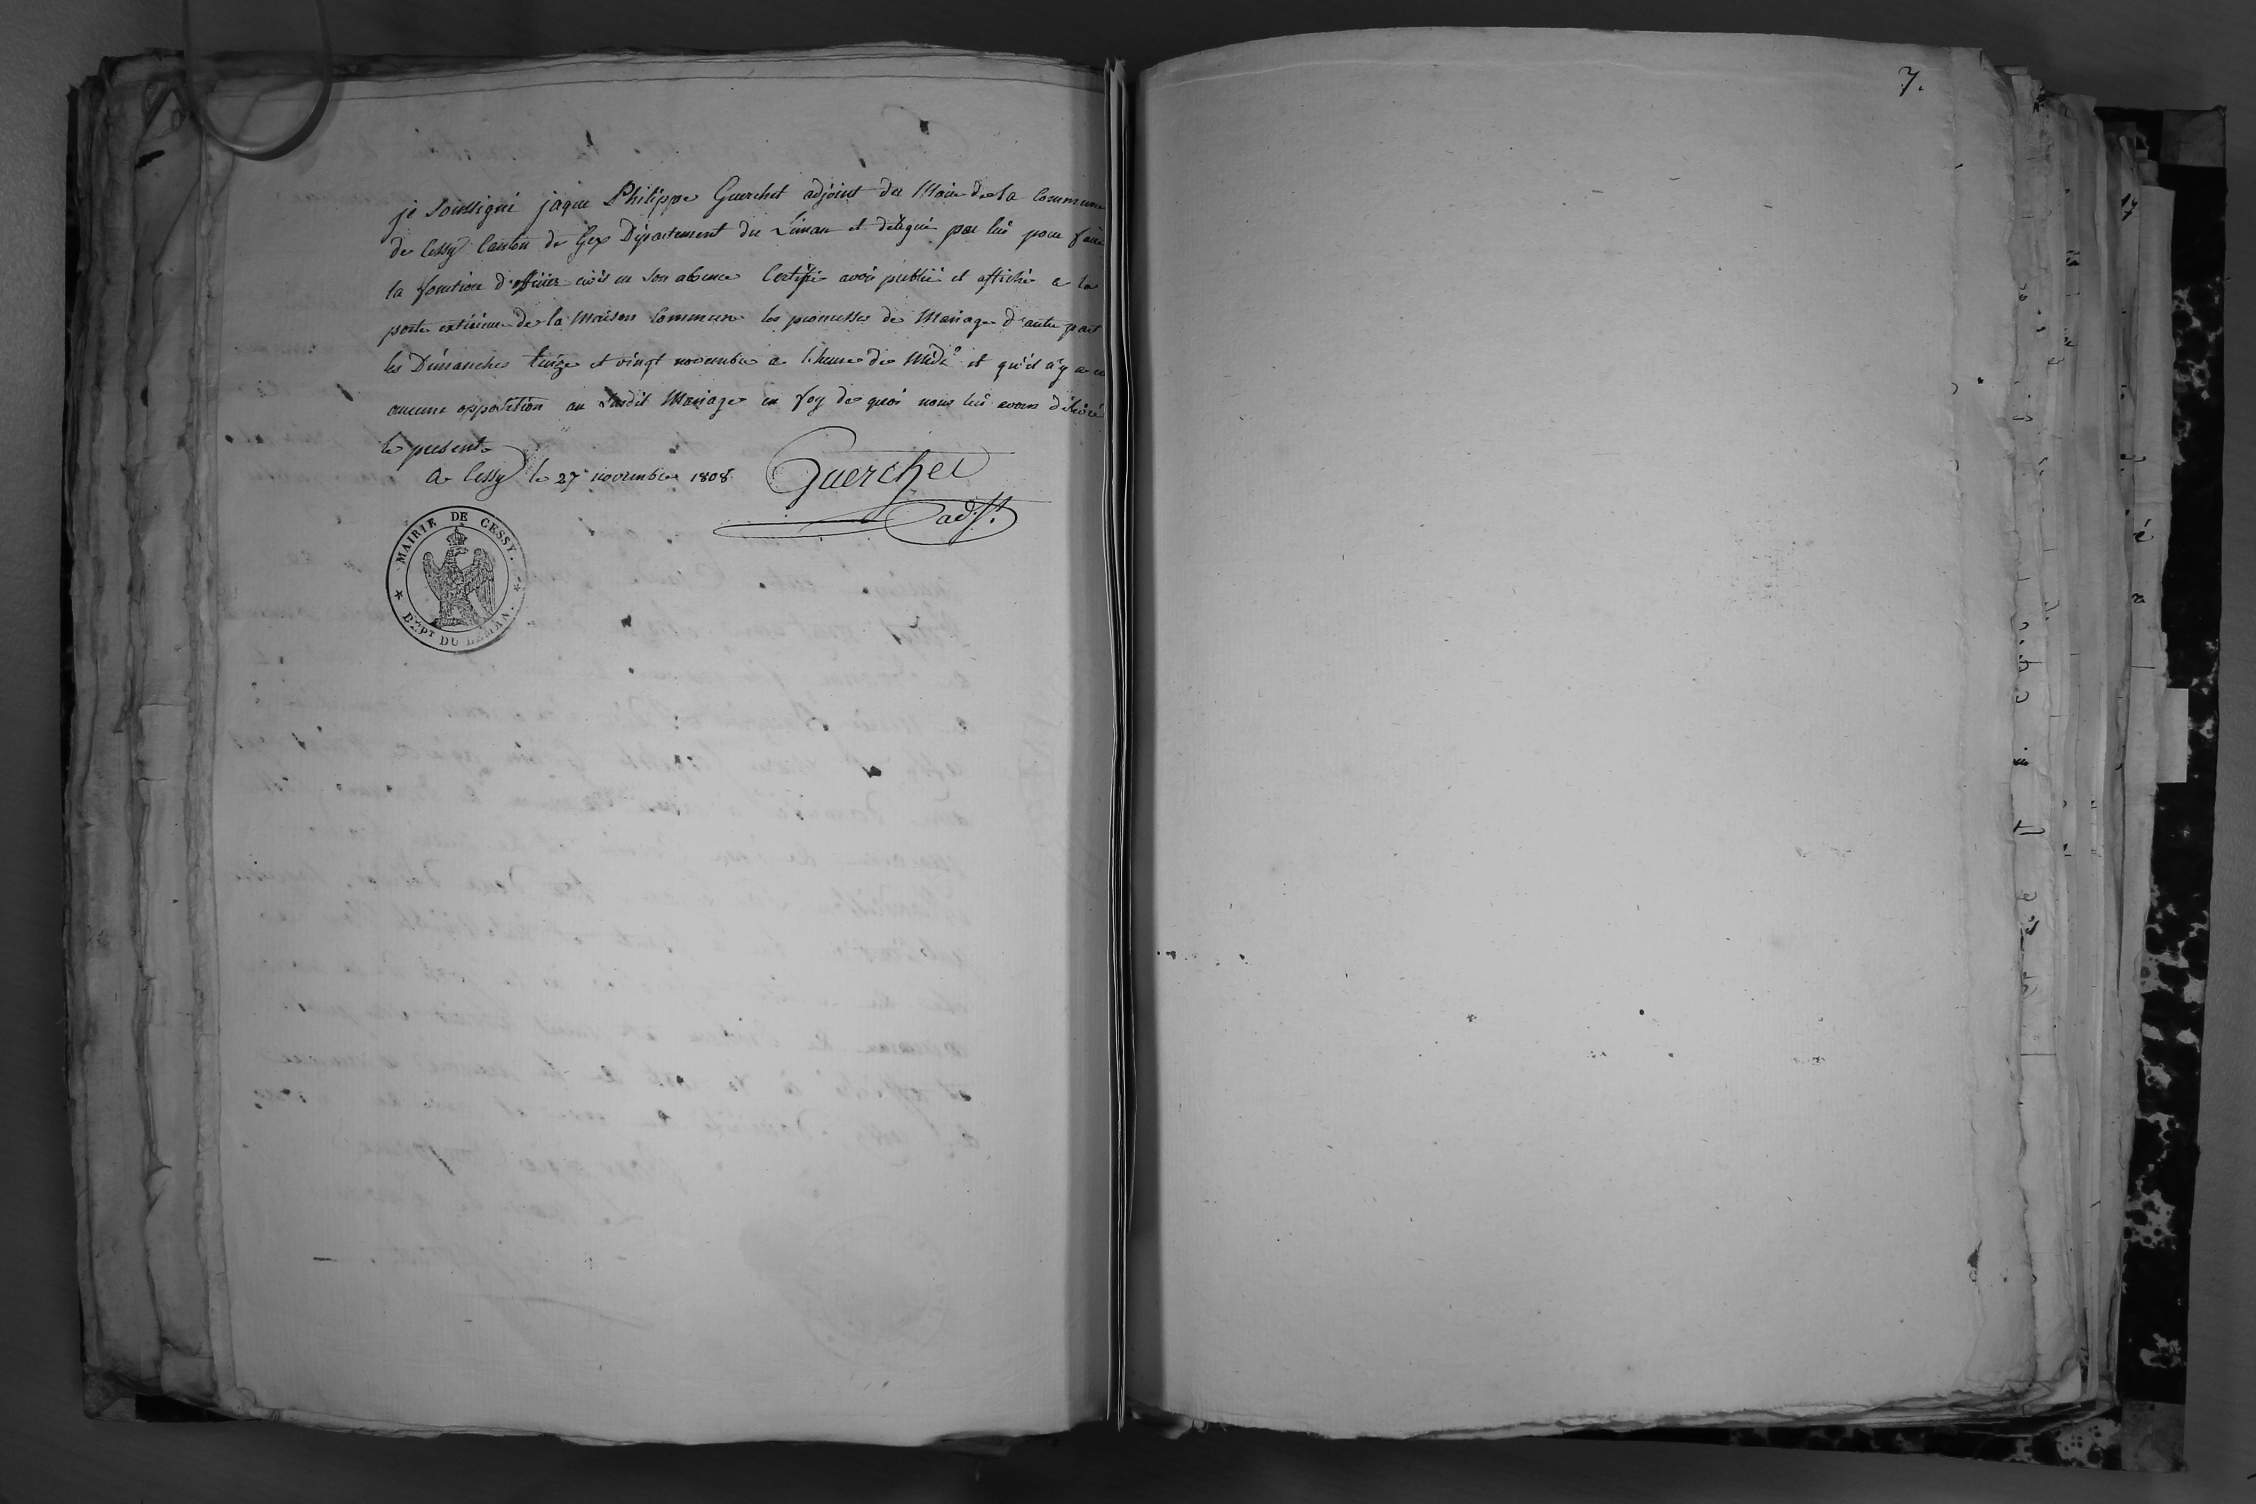 7.
je soussigné jaque Philippe Guerchet adjoint du Maire de la Commune
de Cessy Canton de Gex Département du Léman et délégué par lui pour faire
la fonction d'officier civil en son absence Certifie avoir publié et affiché a la
porte extérieure de la Maison Commune les promesses de Mariage d'autre part
les Dimanches treize et vingt novembre a l'heure de Midi et qu'il n'y a eu
aucune opposition au susdit Mariage en foy de quoi nous lui avons délivré
le present
a Cessy le 27 novembre 1808
Guerchet
adjt.
MAIRIE DE CESSY.
DÉPT DU LÉMAN.